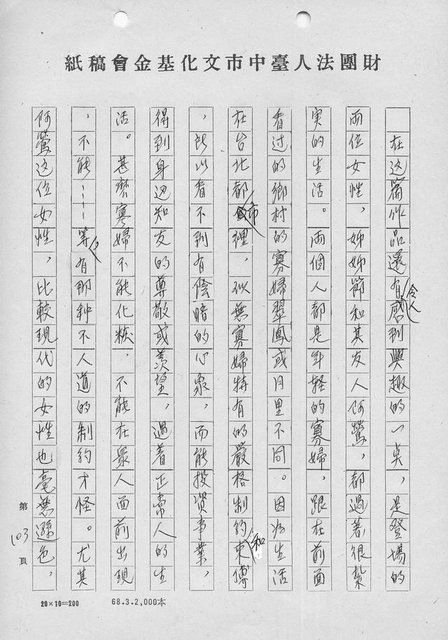 財團法人臺中市文化基金會稿紙
在这篇作品還有令人感到興趣的一点，是登場的
兩位女性，姊姊節和其友人阿鶯，都過着很紮
实的生活。兩個人都是年轻的寡婦，跟在前面
看过的鄉村的寡婦翠鳳或月里不同。因为生活
在台北都市裡，似無寡婦特有的嚴格制約和束縛
，所以看不到有陰暗的心象，而能投資事業，
得到身边知友的尊敬或羡望，過着正常人的生
活。甚麽寡婦不能化粧，不能在衆人面前出現
，不能……等，有那种不人道的制約才怪。尤其
阿鶯这位女性，比較現代的女性也毫無遜色，
第103頁
20×10=200
68.3.2,000本